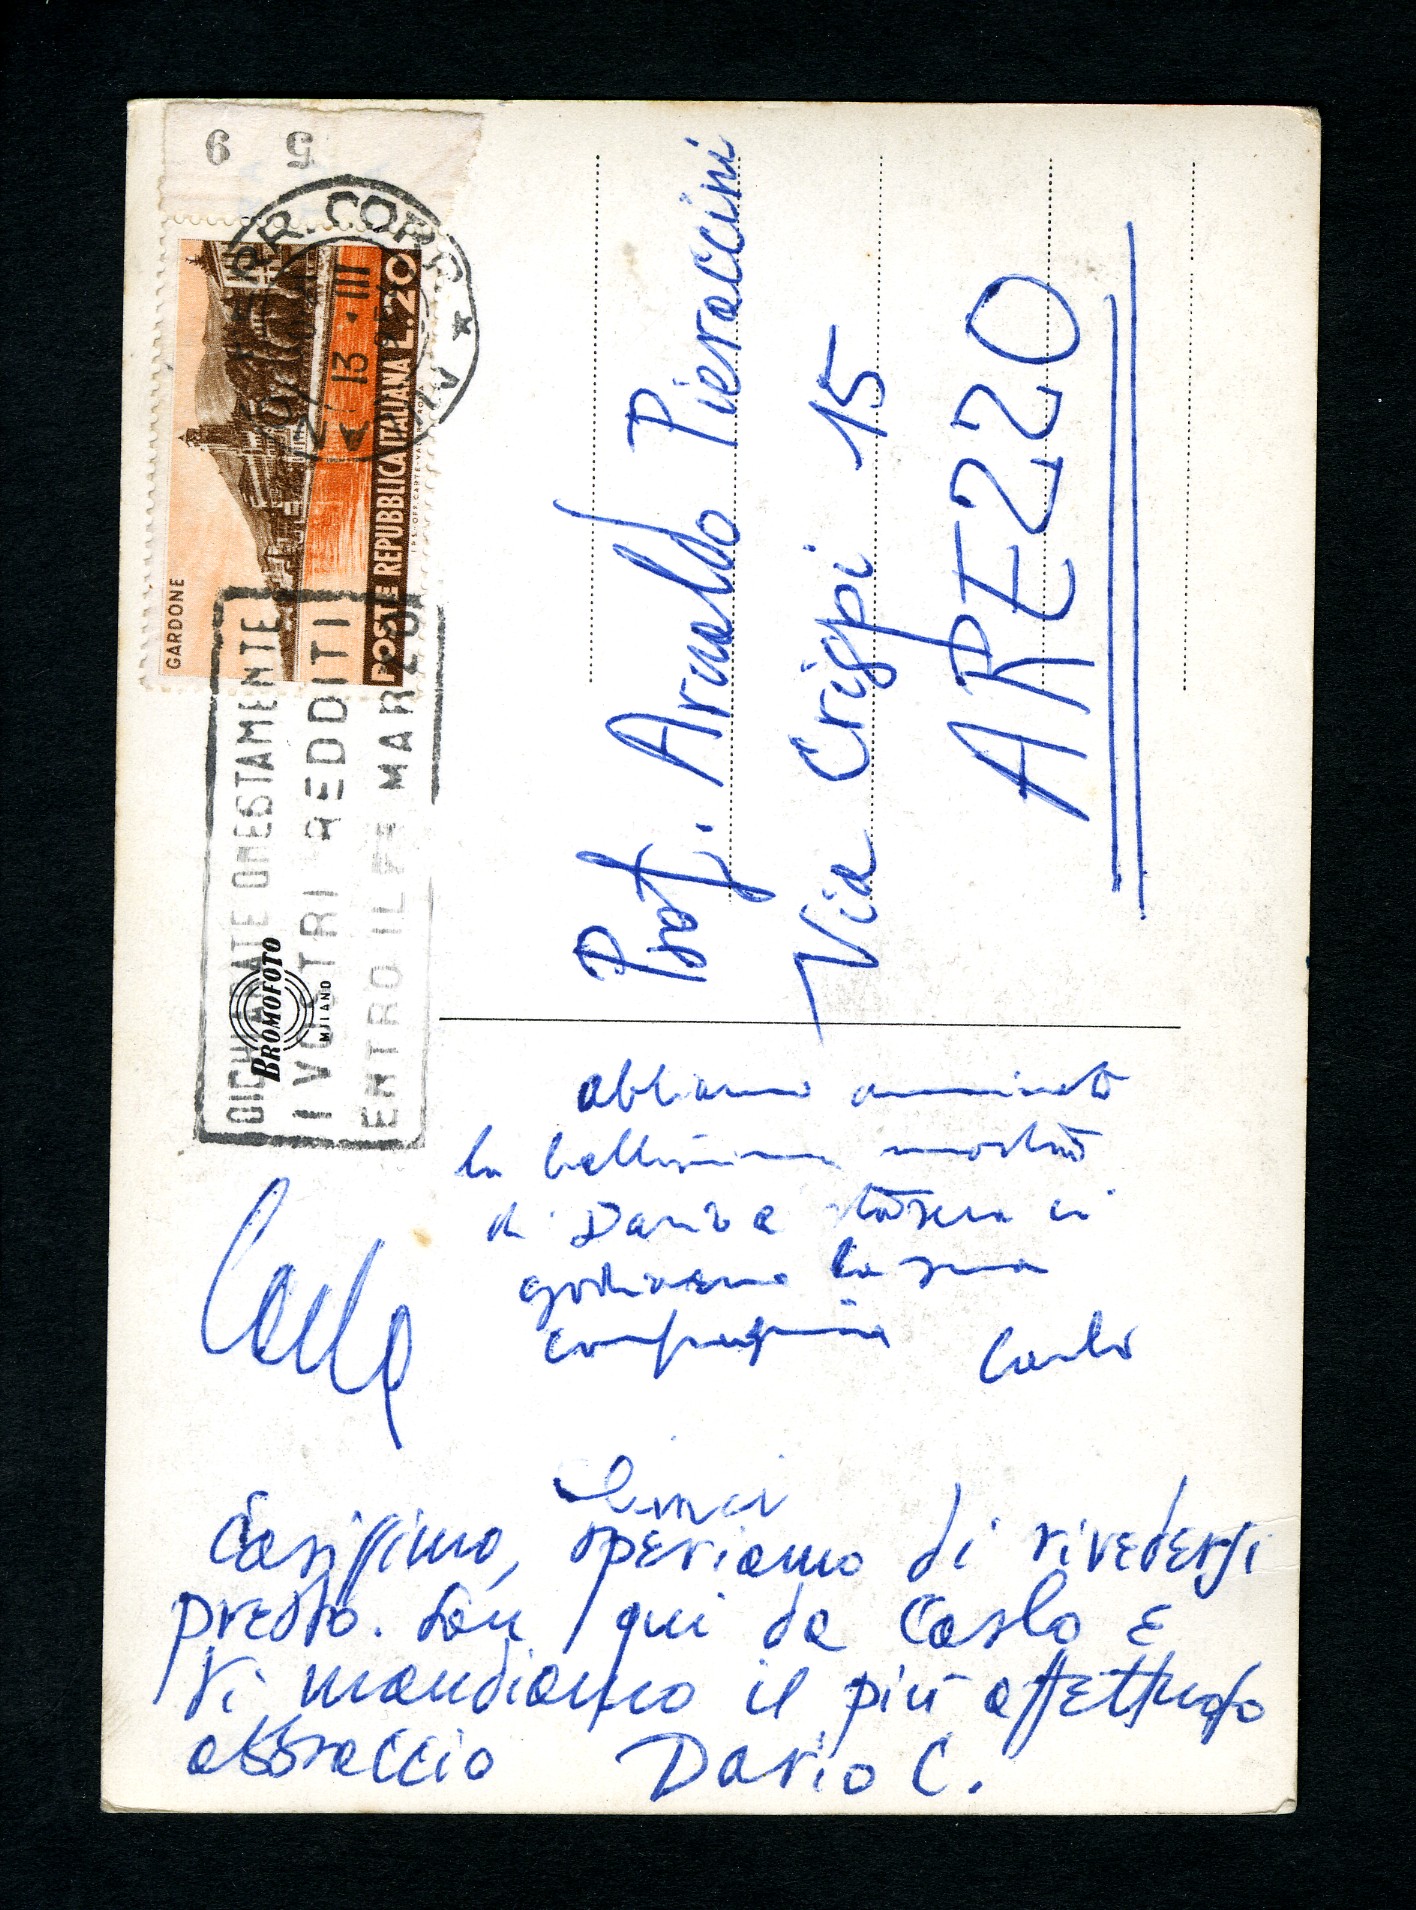 5 9
GARDONE
POSTE REPUBBLICA ITALIANA L.20
CORR.
13 · III
DICHIARATE ONESTAMENTE
I VOSTRI REDDITI
ENTRO IL MARZO
BROMOFOTO
MILANO
Prof. Arnaldo Pieraccini
Via Crispi 15
AREZZO
abbiamo ammirato
la bellissima mostra
di Dario e stasera ci
godiamo la sua
compagnia Carlo
Carissimo, speriamo di rivederti
presto. Son qui da Carlo e
ti mandiamo il più affettuoso
abbraccio Dario C.